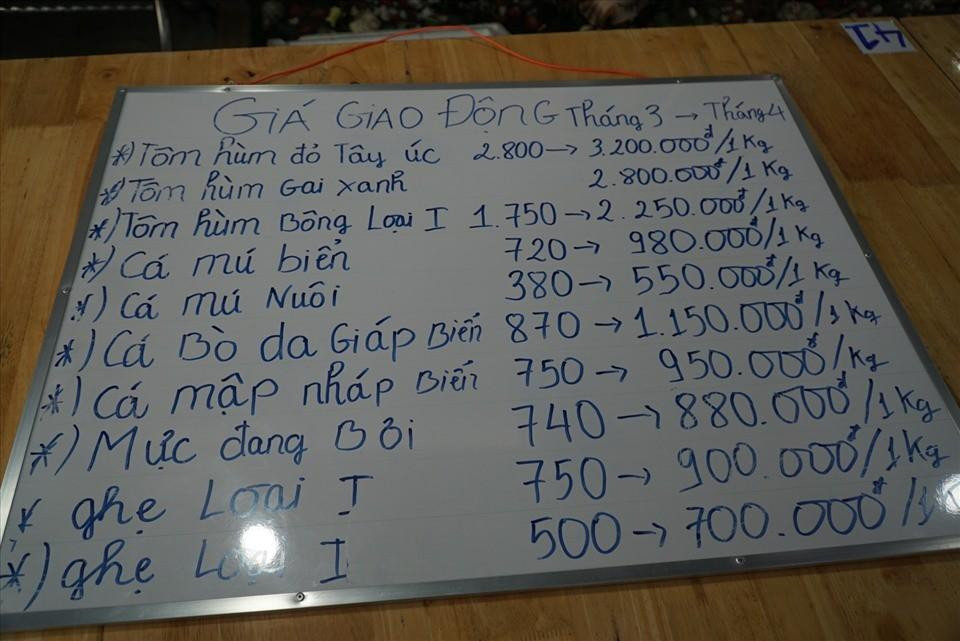 41
GIÁ GIAO ĐỘNG Tháng 3 → Tháng 4
*) Tôm hùm đỏ Tây úc 2.800 → 3.200.000đ/1 Kg
*) Tôm hùm Gai xanh 2.800.000đ/1 Kg
*) Tôm hùm Bông Loại I 1.750 → 2.250.000đ/1 Kg
*) Cá mú biển 720 → 980.000đ/1 Kg
*) Cá mú Nuôi 380 → 550.000đ/1 Kg
*) Cá Bò da Giáp Biển 870 → 1.150.000đ/1 Kg
*) Cá mập nháp Biển 750 → 950.000đ/Kg
*) Mực đang Bơi 740 → 880.000đ/1 Kg
* ghẹ Loại I 750 → 900.000đ/1 Kg
*) ghẹ Loại I 500 → 700.000đ/1